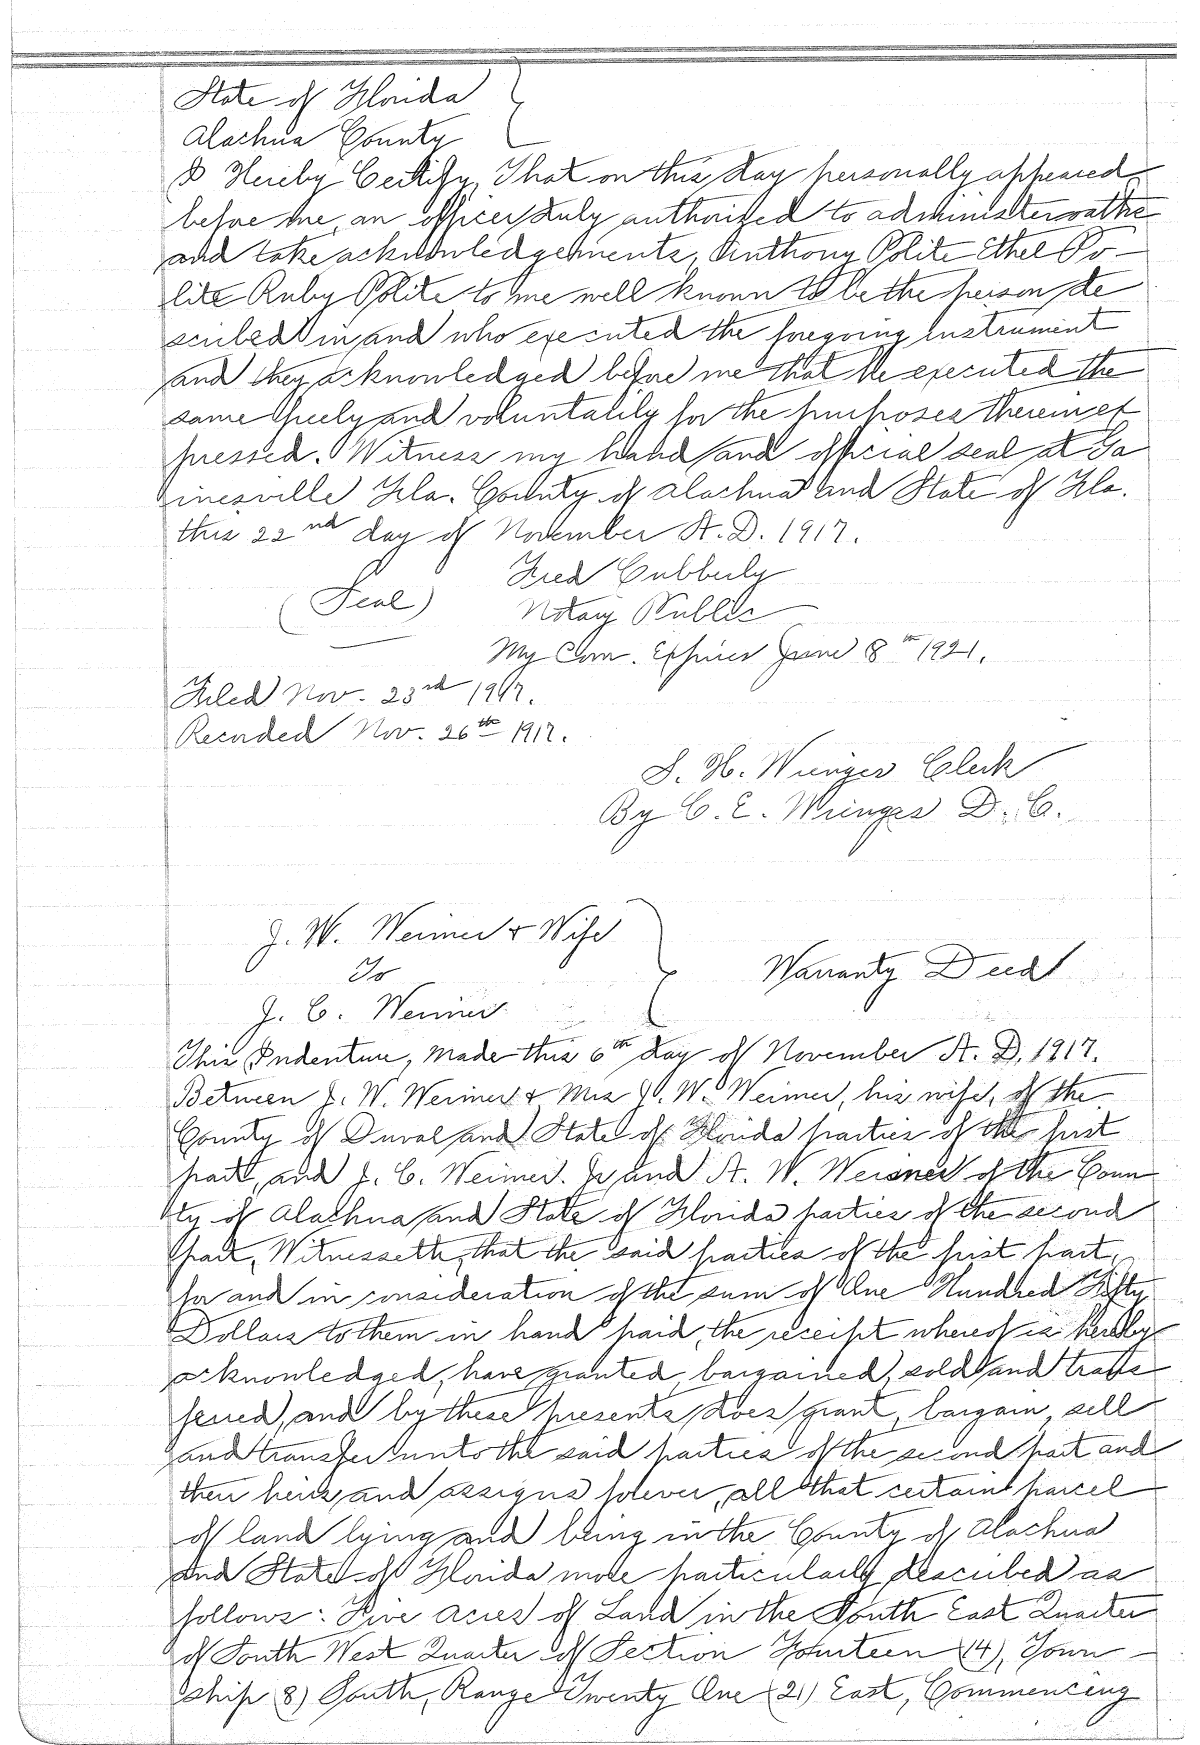 State of Florida
Alachua County
I Hereby Certify, That on this day personally appeared
before me, an officer duly authorized to administer oaths
and take acknowledgements, Anthony Polite Ethel Po-
lite Ruby Polite to me well known to be the person de
scribed in and who executed the foregoing instrument
and they acknowledged before me that he executed the
same freely and voluntalily for the purposes therein ex
pressed. Witness my hand and official seal at Ga
inesville Fla. County of Alachua and State of Fla.
this 22nd day of November A.D. 1917.
Fred Cubberly
(Seal) Notary Public
My Com. Expires June 8th 1921.
Filed Nov. 23rd 1917.
Recorded Nov. 26th 1917.
S. H. Wienges Clerk
By C. E. Wienges D. C.
J. W. Weimer & Wife
To
Warranty Deed
J. C. Weimer
This Indenture, Made this 6th day of November A. D. 1917.
Between J. W. Weimer & Mrs J. W. Weimer, his wife, of the
County of Duval and State of Florida parties of the first
part, and J. C. Weimer. Jr and A. W. Weimer of the Coun
ty of Alachua and State of Florida parties of the second
part, Witnesseth, that the said parties of the first part,
for and in consideration of the sum of One Hundred Fifty
Dollars to them in hand paid, the receipt whereof is hereby
acknowledged, have granted, bargained, sold and trans
ferred, and by these presents does grant, bargain, sell
and transfer unto the said parties of the second part and
their heirs and assigns forever, all that certain parcel
of land lying and being in the County of Alachua
and State of Florida more particularly described as
follows: Five Acres of Land in the South East Quarter
of South West Quarter of Section Fourteen (14), Town-
ship (8) South, Range Twenty One (21) East, Commencing